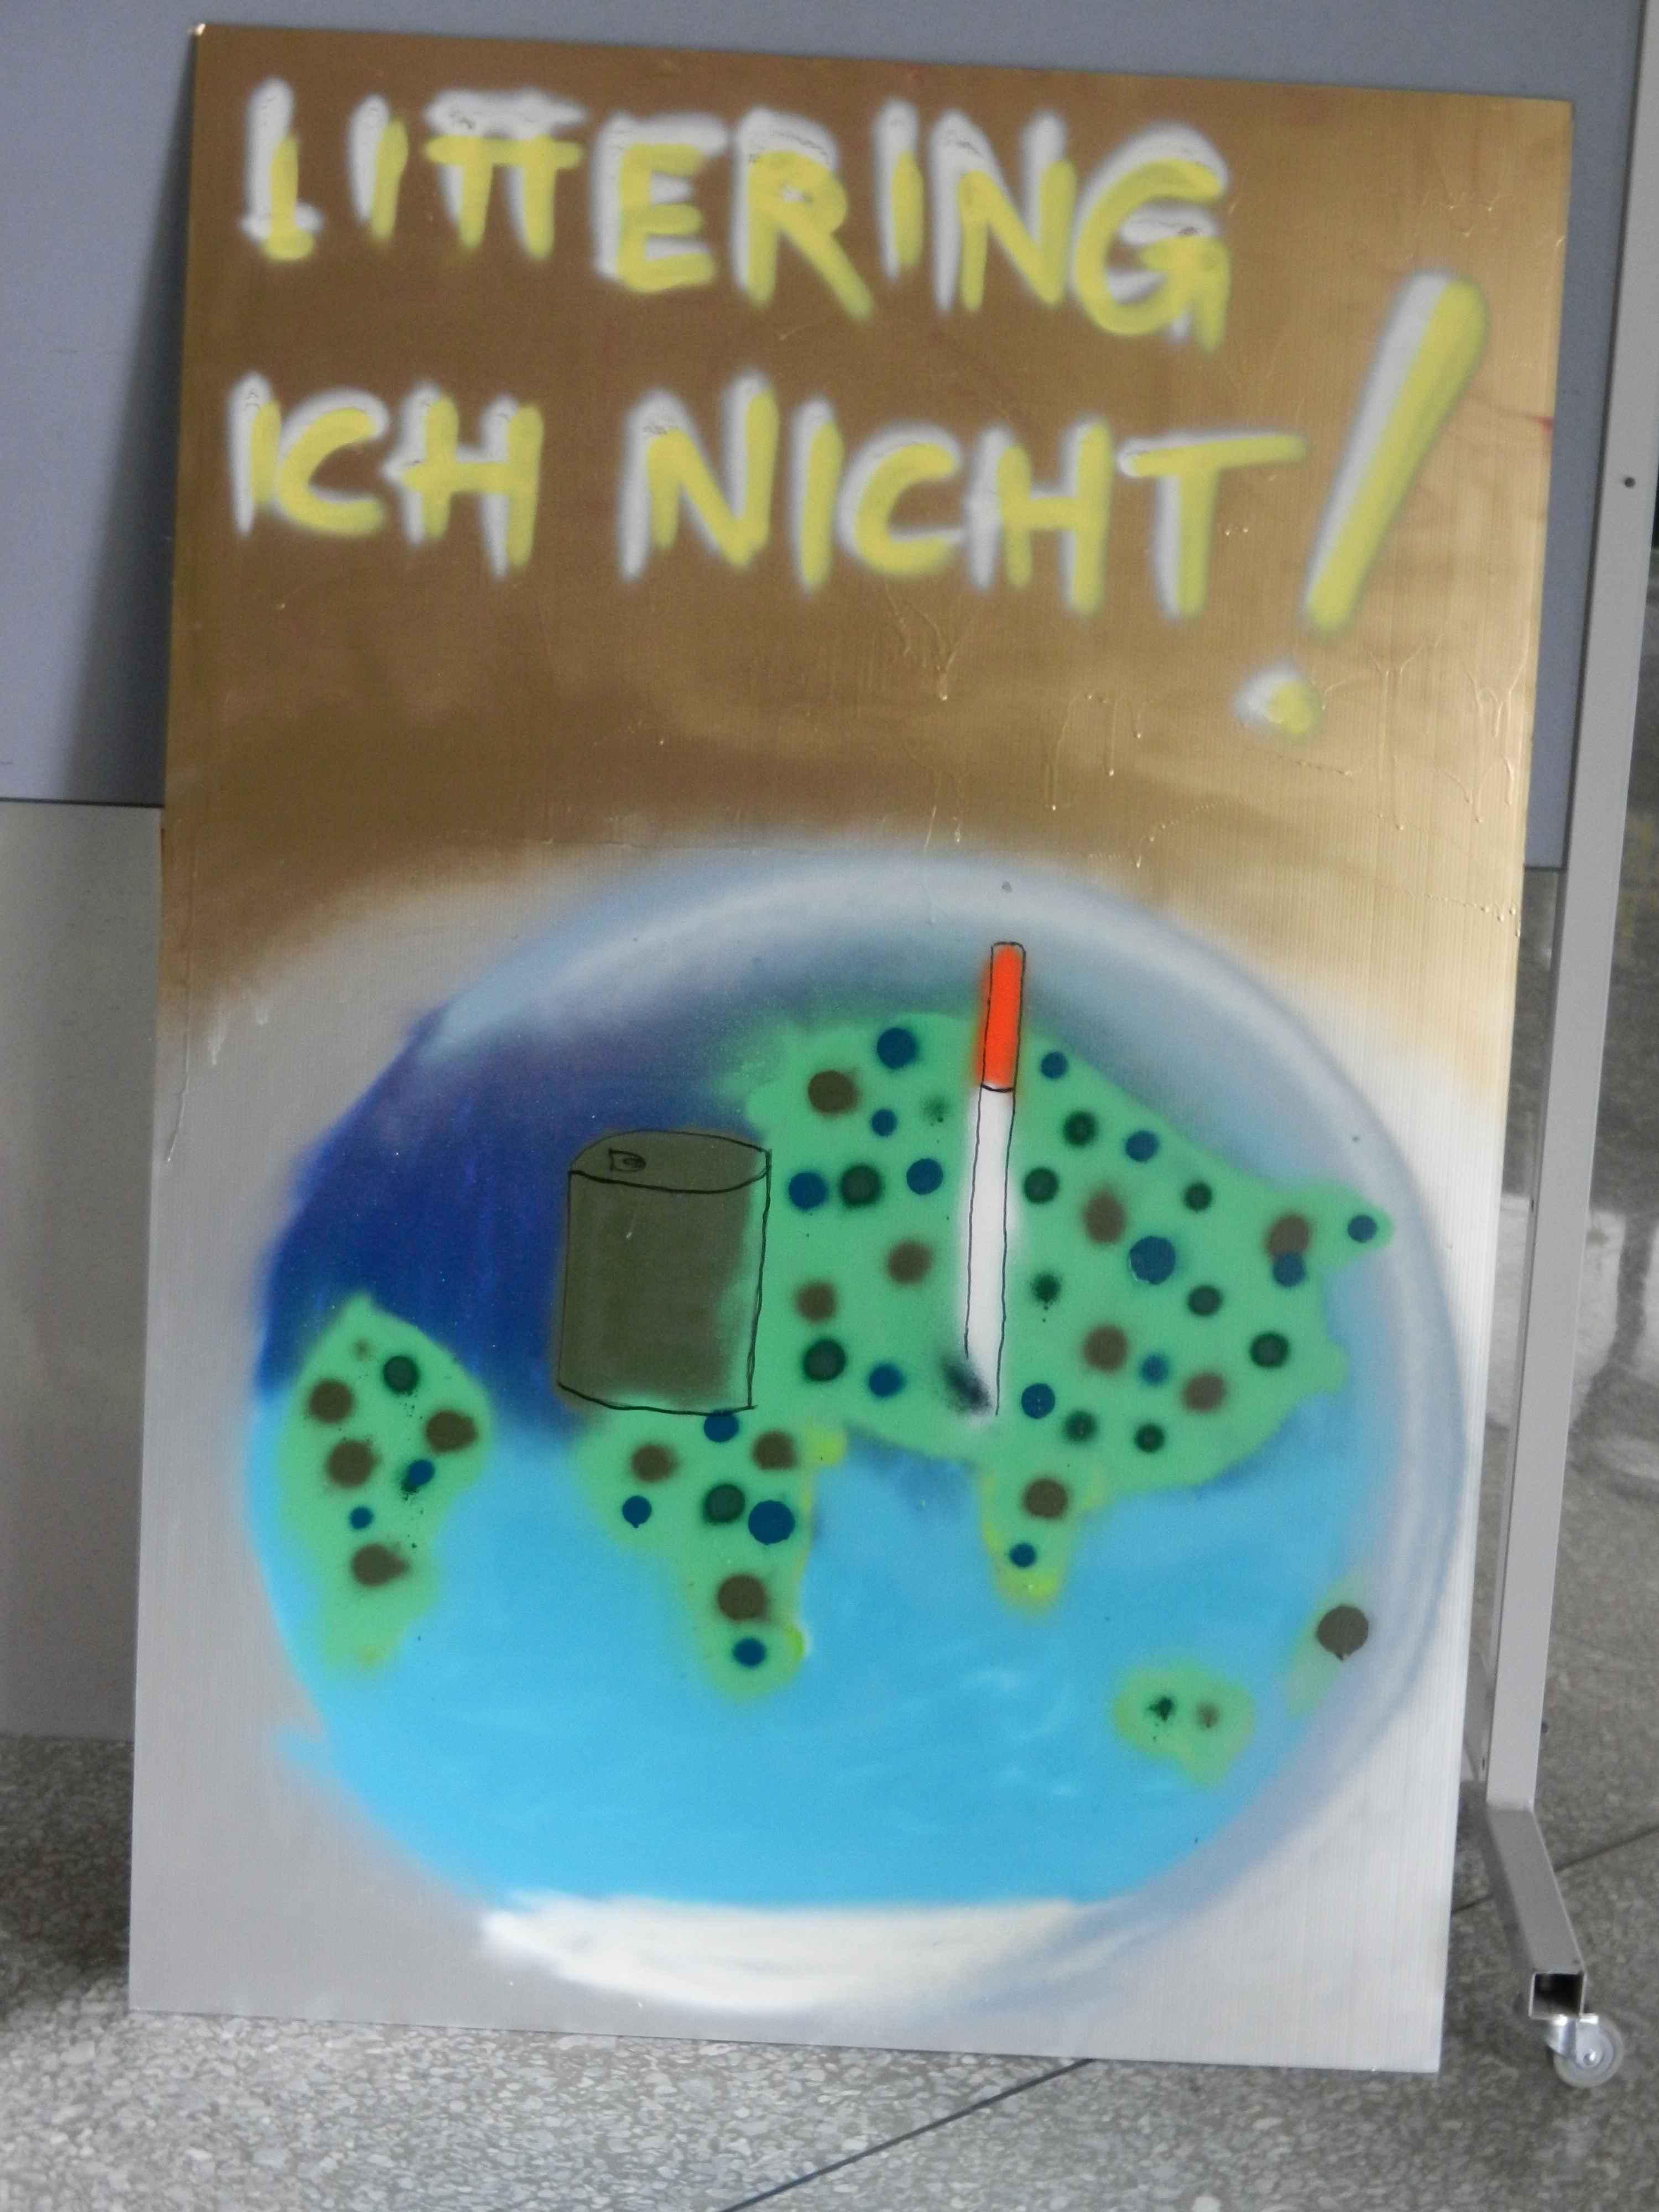 LITTERING
ICH NICHT!